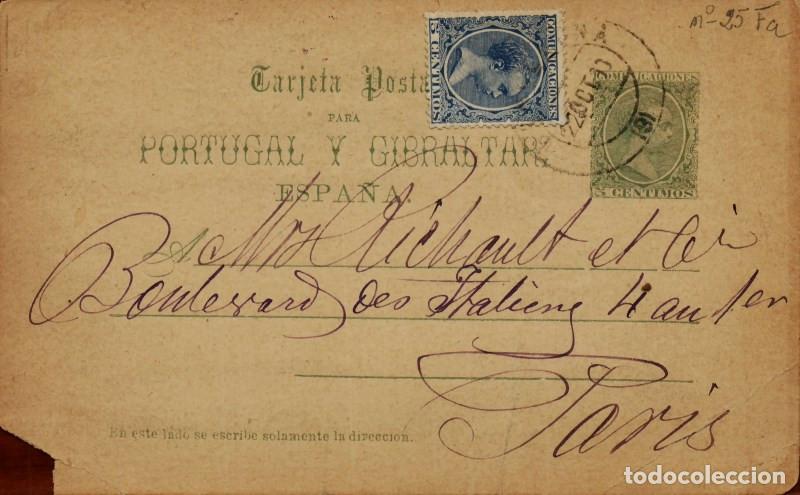 nº 25 Fa
Tarjeta Posta
PARA
PORTUGAL Y GIBRALTAR.
ESPAÑA.
COMUNICACIONES
5 CENTIMOS
22 OCT 90
(13)
COMUNICACIONES
5 CENTIMOS
A Mrs Richault et Cie
Boulevard des Italiens 4 au 1er
Paris
En este lado se escribe solamente la direccion.
todocoleccion.net